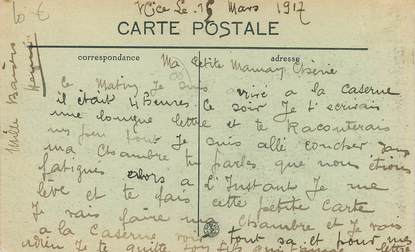 10 €
Nice Le 15 Mars 1917
CARTE POSTALE
correspondance
adresse
Ma Petite Maman Chérie
Ce Matin Je suis arivé a la Caserne
il était 4 Heures Ce soir Je t'ecrais
une longue lettre et te Raconterais
un peu tout Je suis allé coucher dans
ma Chambre tu parles que nous étions
fatigues alors a L'Instant Je me
lève et te fais cette petite Carte
Je vais faire ma Chambre et Je vais
a la Caserne voir tout sa et pour me
Je te quitte ton fils qui t'aime
Mille Baisers